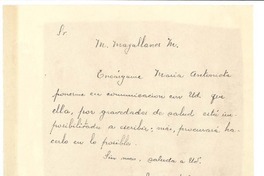 Sr
M. Magallanes M.
Encárgame María Antonieta
ponerme en comunicación con Ud. que
ella, por gravedades de salud está im
posibilitada a escribir; mas, procurará ha
cerlo en lo posible.
Sin mas, saluda a Ud.